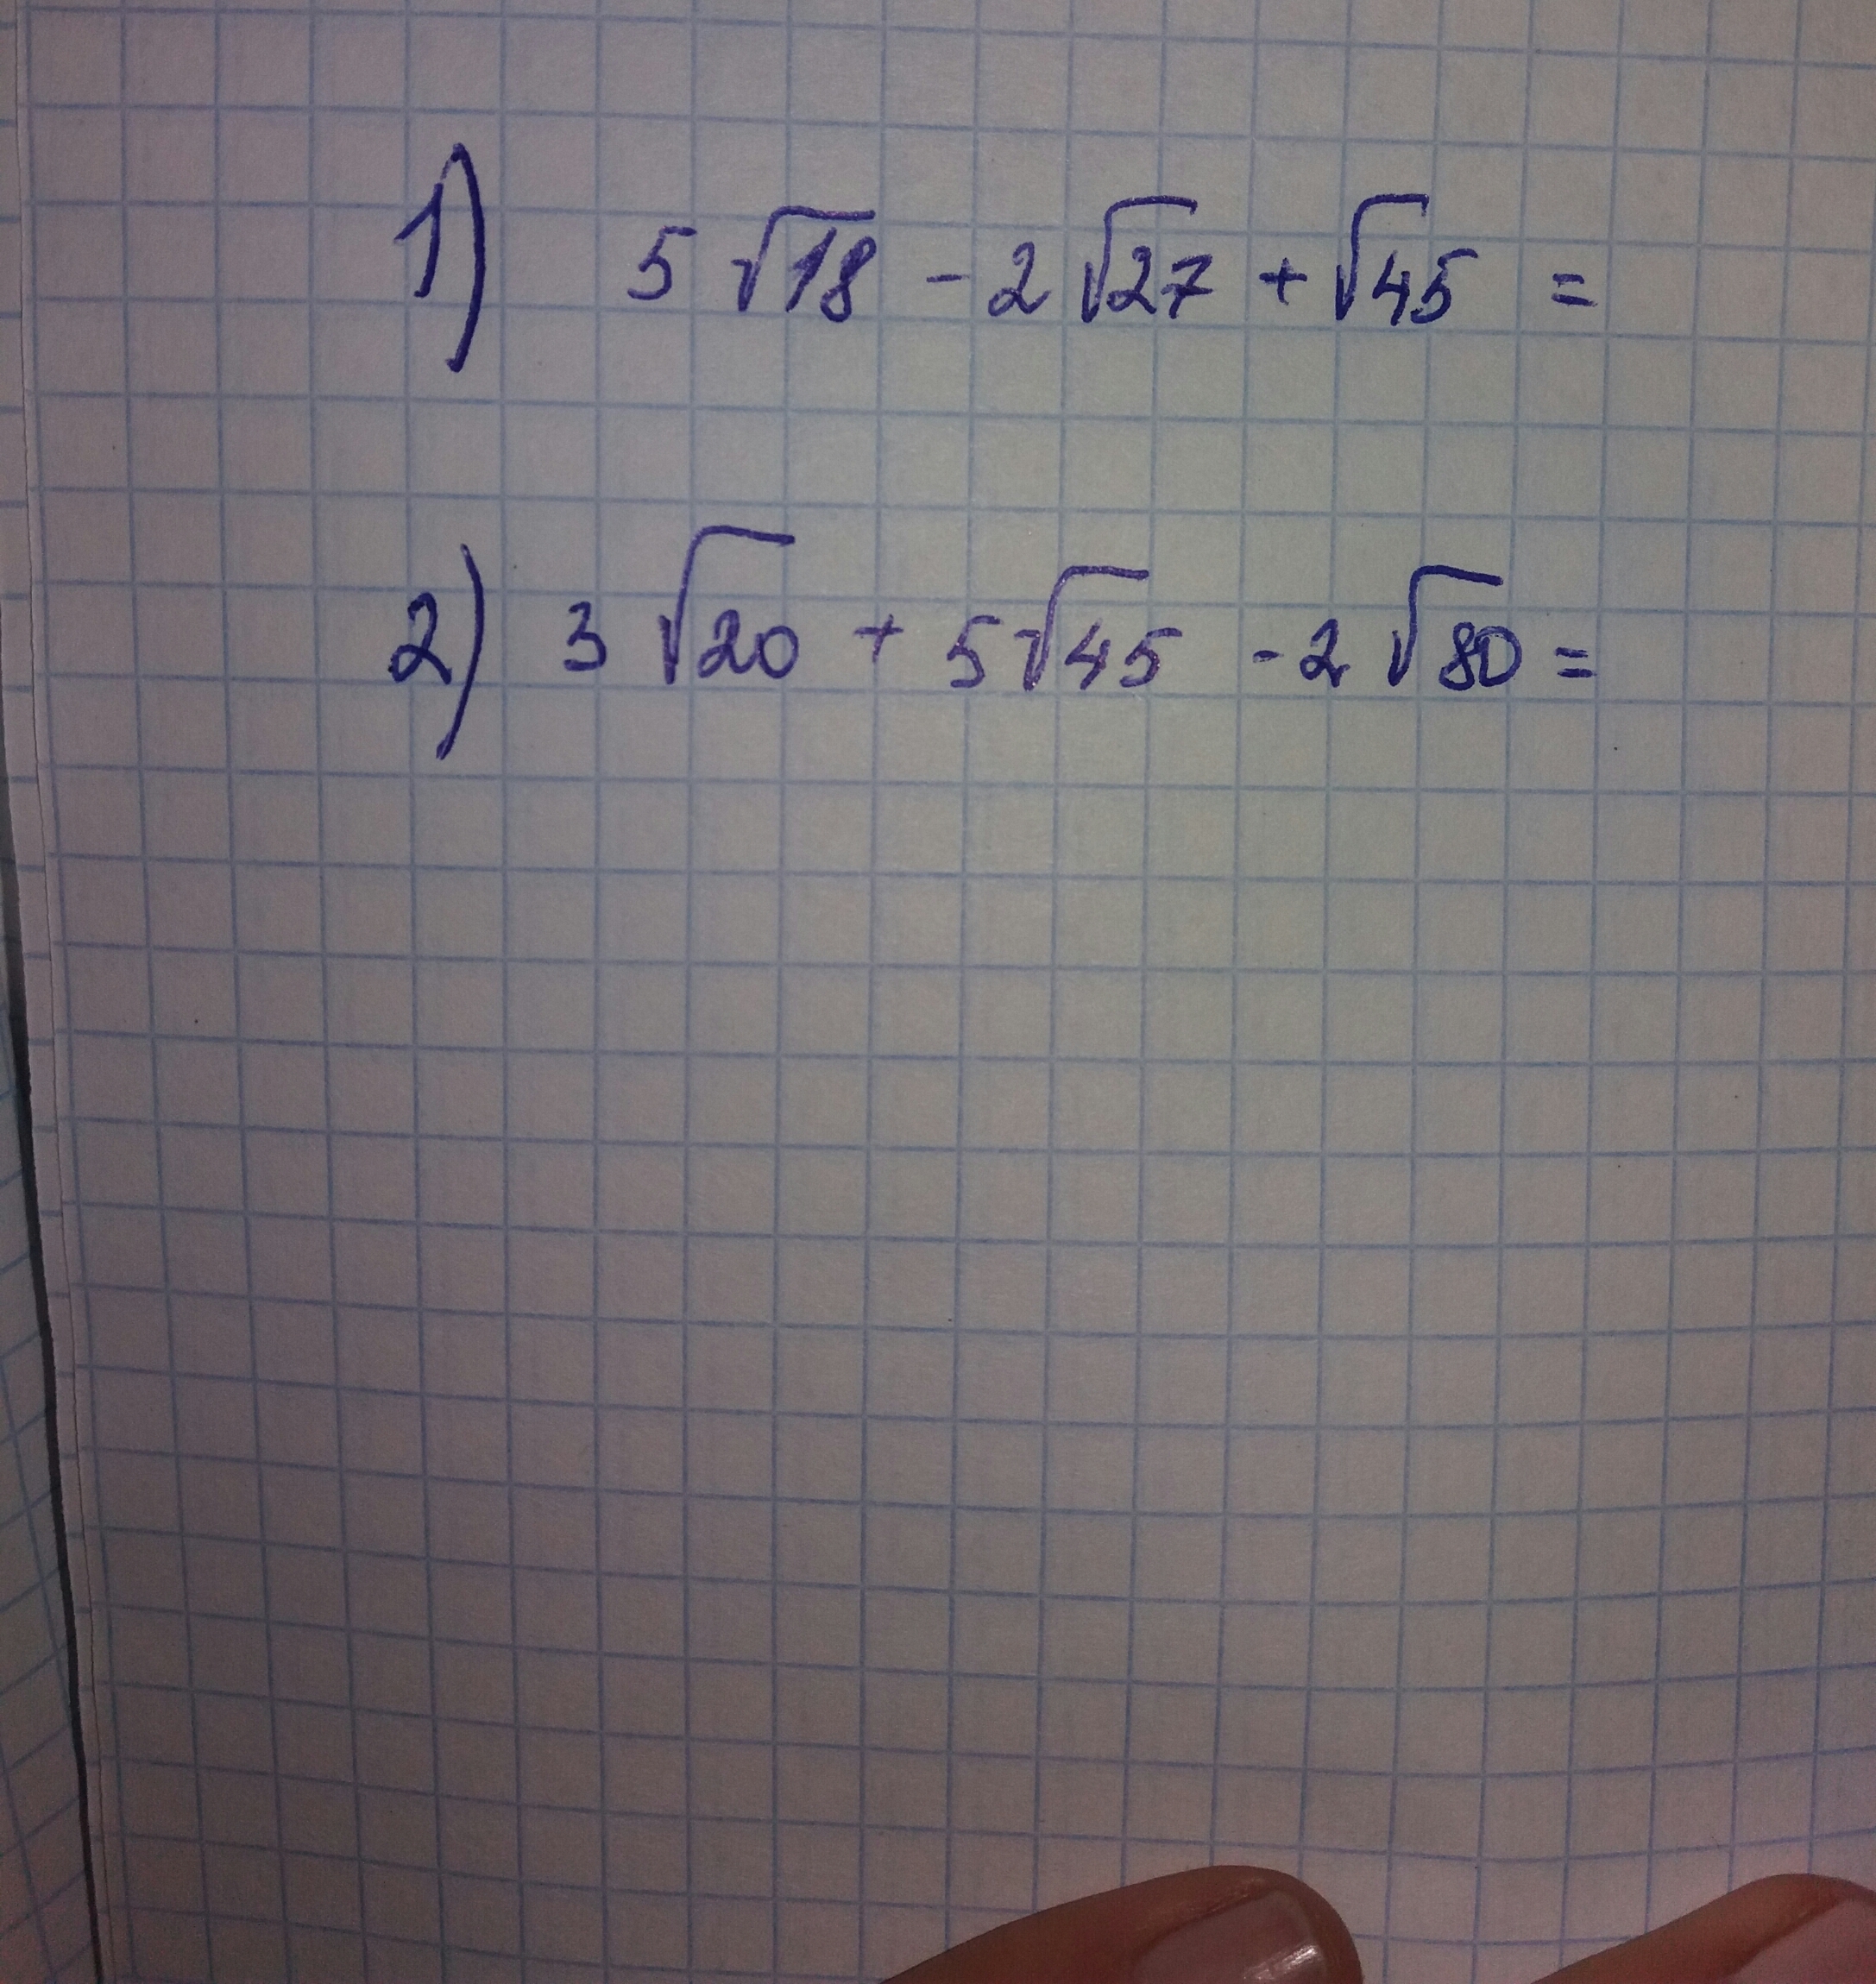 1) 5√18 - 2√27 + √45 =
2) 3√20 + 5√45 - 2√80 =